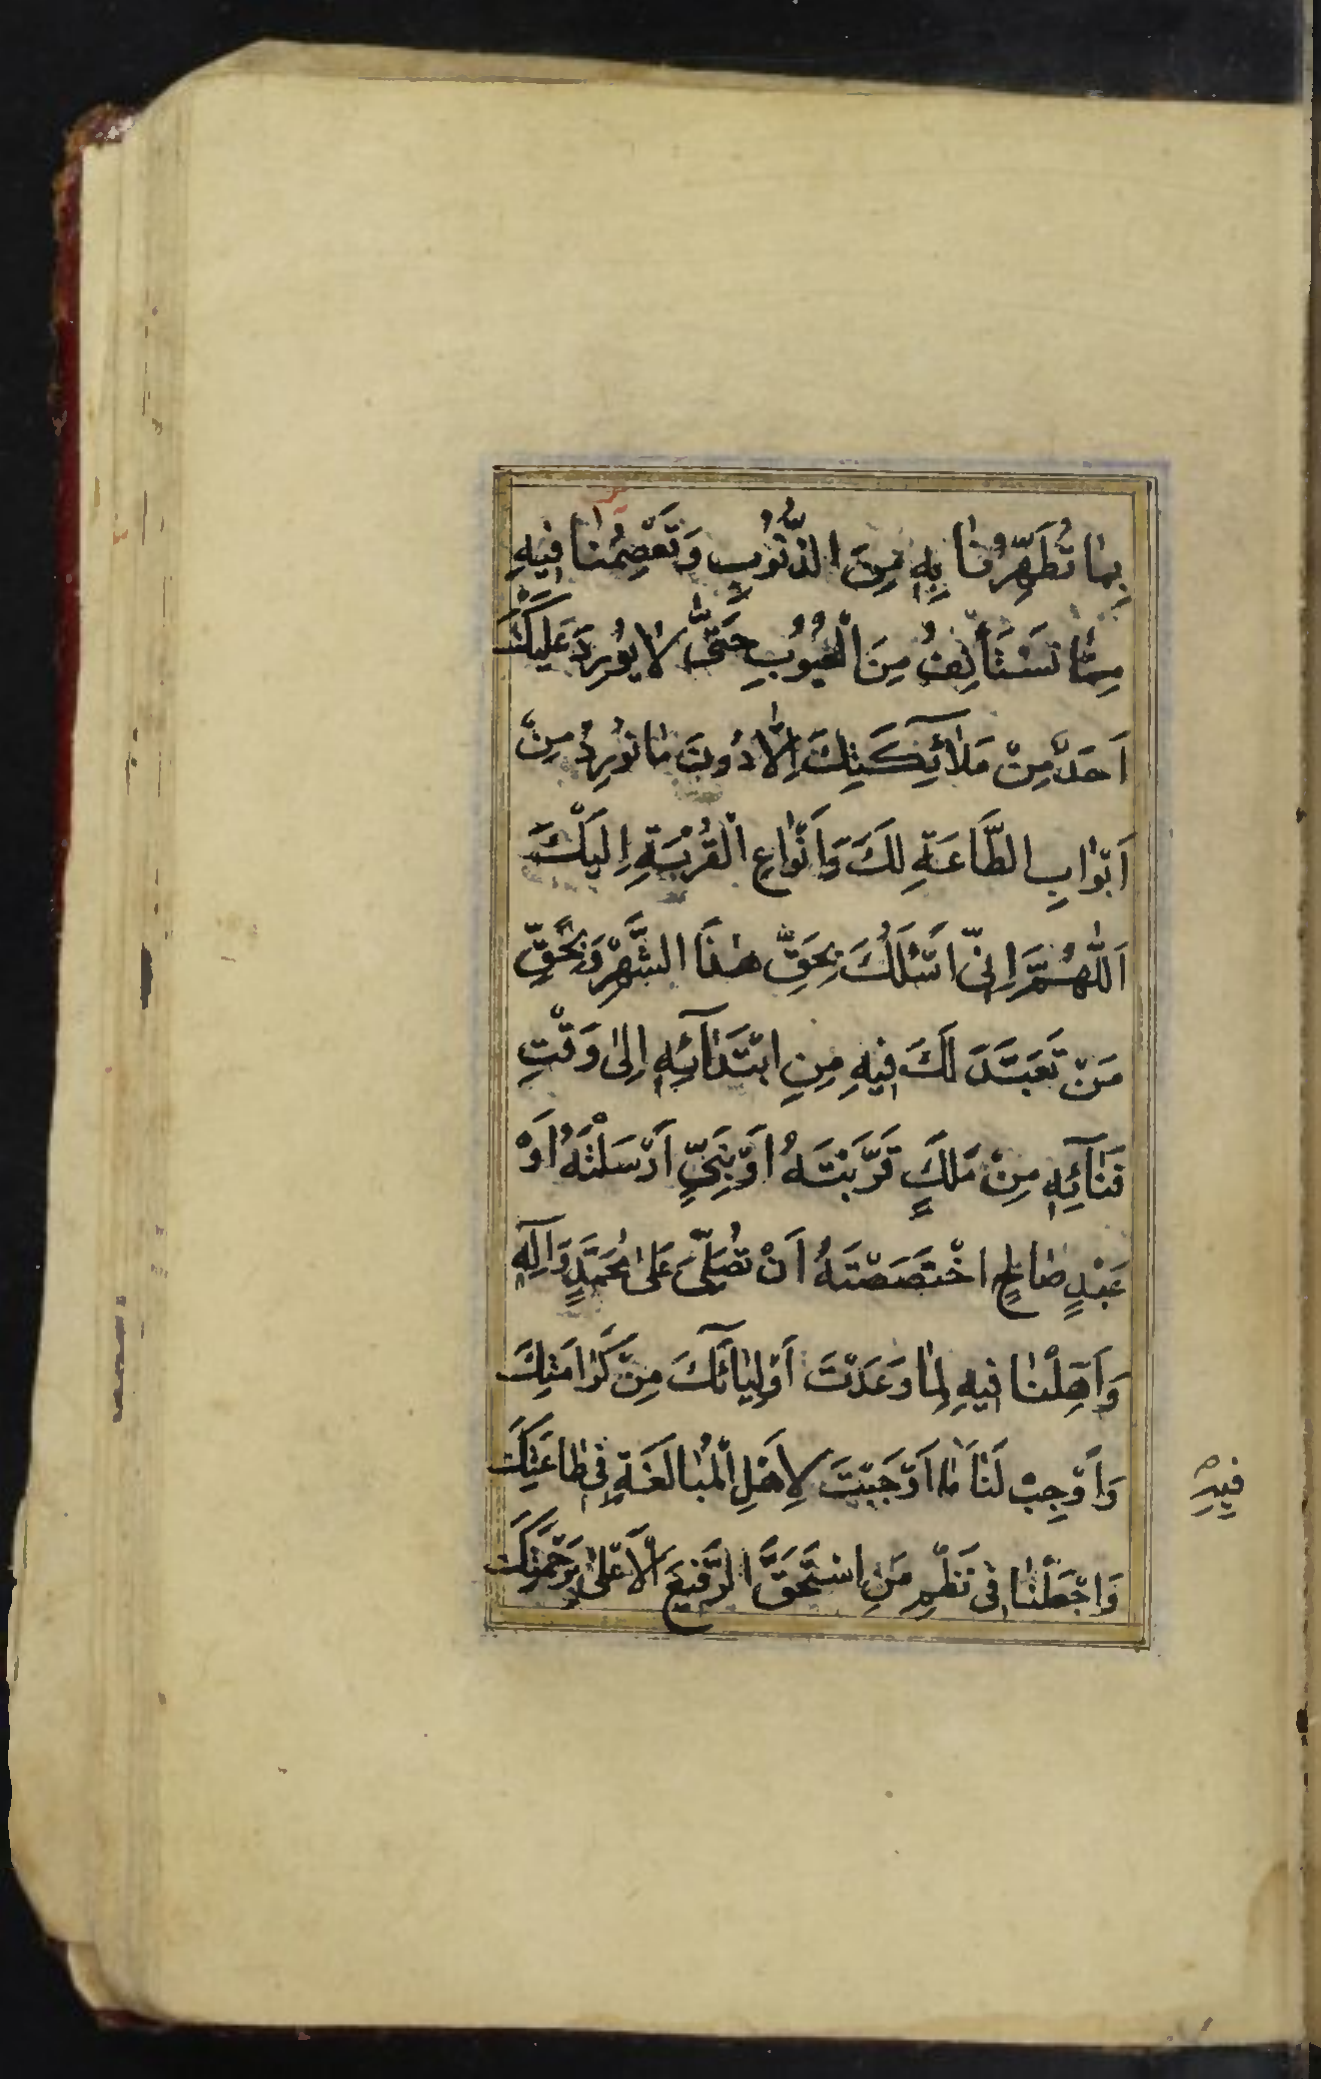 بِمٰا تُطَهِّرُنٰا بِهِ مِنَ الذُّنُوبِ وَتَعْصِمُنٰا فِيهِ
مِمّٰا نَسْتَأْنِفُ مِنَ الْعُيُوبِ حَتّٰى لٰا يُورِدَ عَلَيْكَ
اَحَدٌ مِنْ مَلٰائِكَتِكَ اِلّٰا دُونَ مٰا نُورِدُ مِنْ
اَبْوٰابِ الطَّاعَةِ لَكَ وَاَنْوٰاعِ الْقُرْبَةِ اِلَيْكَ
اَللّٰهُمَّ اِنِّى اَسْئَلُكَ بِحَقِّ هٰذَا الشَّهْرِ وَبِحَقِّ
مَنْ تَعَبَّدَ لَكَ فِيهِ مِنِ ابْتَدٰآئِهِ اِلىٰ وَقْتِ
فَنٰآئِهِ مِنْ مَلَكٍ قَرَّبْتَهُ اَوْ نَبِىٍّ اَرْسَلْتَهُ اَوْ
عَبْدٍ صٰالِحٍ اخْتَصَصْتَهُ اَنْ تُصَلِّىَ عَلىٰ مُحَمَّدٍ وَآلِهِ
وَاَهِّلْنٰا فِيهِ لِمٰا وَعَدْتَ اَوْلِيٰآئَكَ مِنْ كَرٰامَتِكَ
وَاَوْجِبْ لَنٰا مٰا اَوْجَبْتَ لِاَهْلِ الْمُبٰالَغَةِ فِى طٰاعَتِكَ
وَاجْعَلْنٰا فِى نَظْمِ مَنِ اسْتَحَقَّ الرَّفِيعَ الْاَعْلىٰ بِرَحْمَتِكَ
فِيهِ